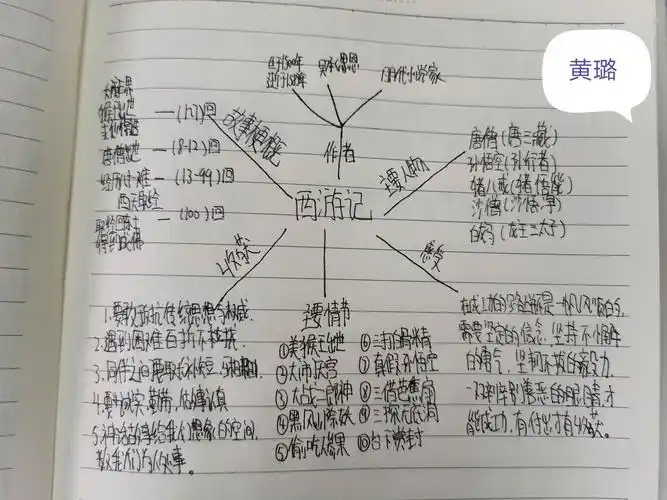 黄璐
生于1500年
逝于1582年
吴承恩
明代小说家
作者
西游记
故事梗概
猴王出世
(1-7)回
唐僧出世
(8-12)回
经历
难
西天取经
(13-99)回
取经回东土
得到成佛
(100)回
主要人物
唐僧(唐三藏)
孙悟空(孙行者)
猪八戒(猪悟能)
沙僧(沙悟净)
白马(龙王三太子)
收获
1.要敢于抵抗传统思想与权威.
2.遇到困难百折不挠
3.同伴之间要取长补短,
4.要诚实,勤劳,做事认真
5.神话故事给我们想象的空间,
教我们为人处事。
主要情节
①美猴王出世
②大闹天宫
③大战二郎神
④黑风山除妖
⑤偷吃人参果
⑥三打白骨精
⑦真假孙悟空
⑧三借芭蕉扇
⑨三探无底洞
⑩
感受
在成功的路上都不是一帆风顺的,
需要坚定的信念,坚持不懈
的勇气,坚韧不拔的毅力.
一双辨别善恶的眼睛,才
能成功,有付出才有收获。